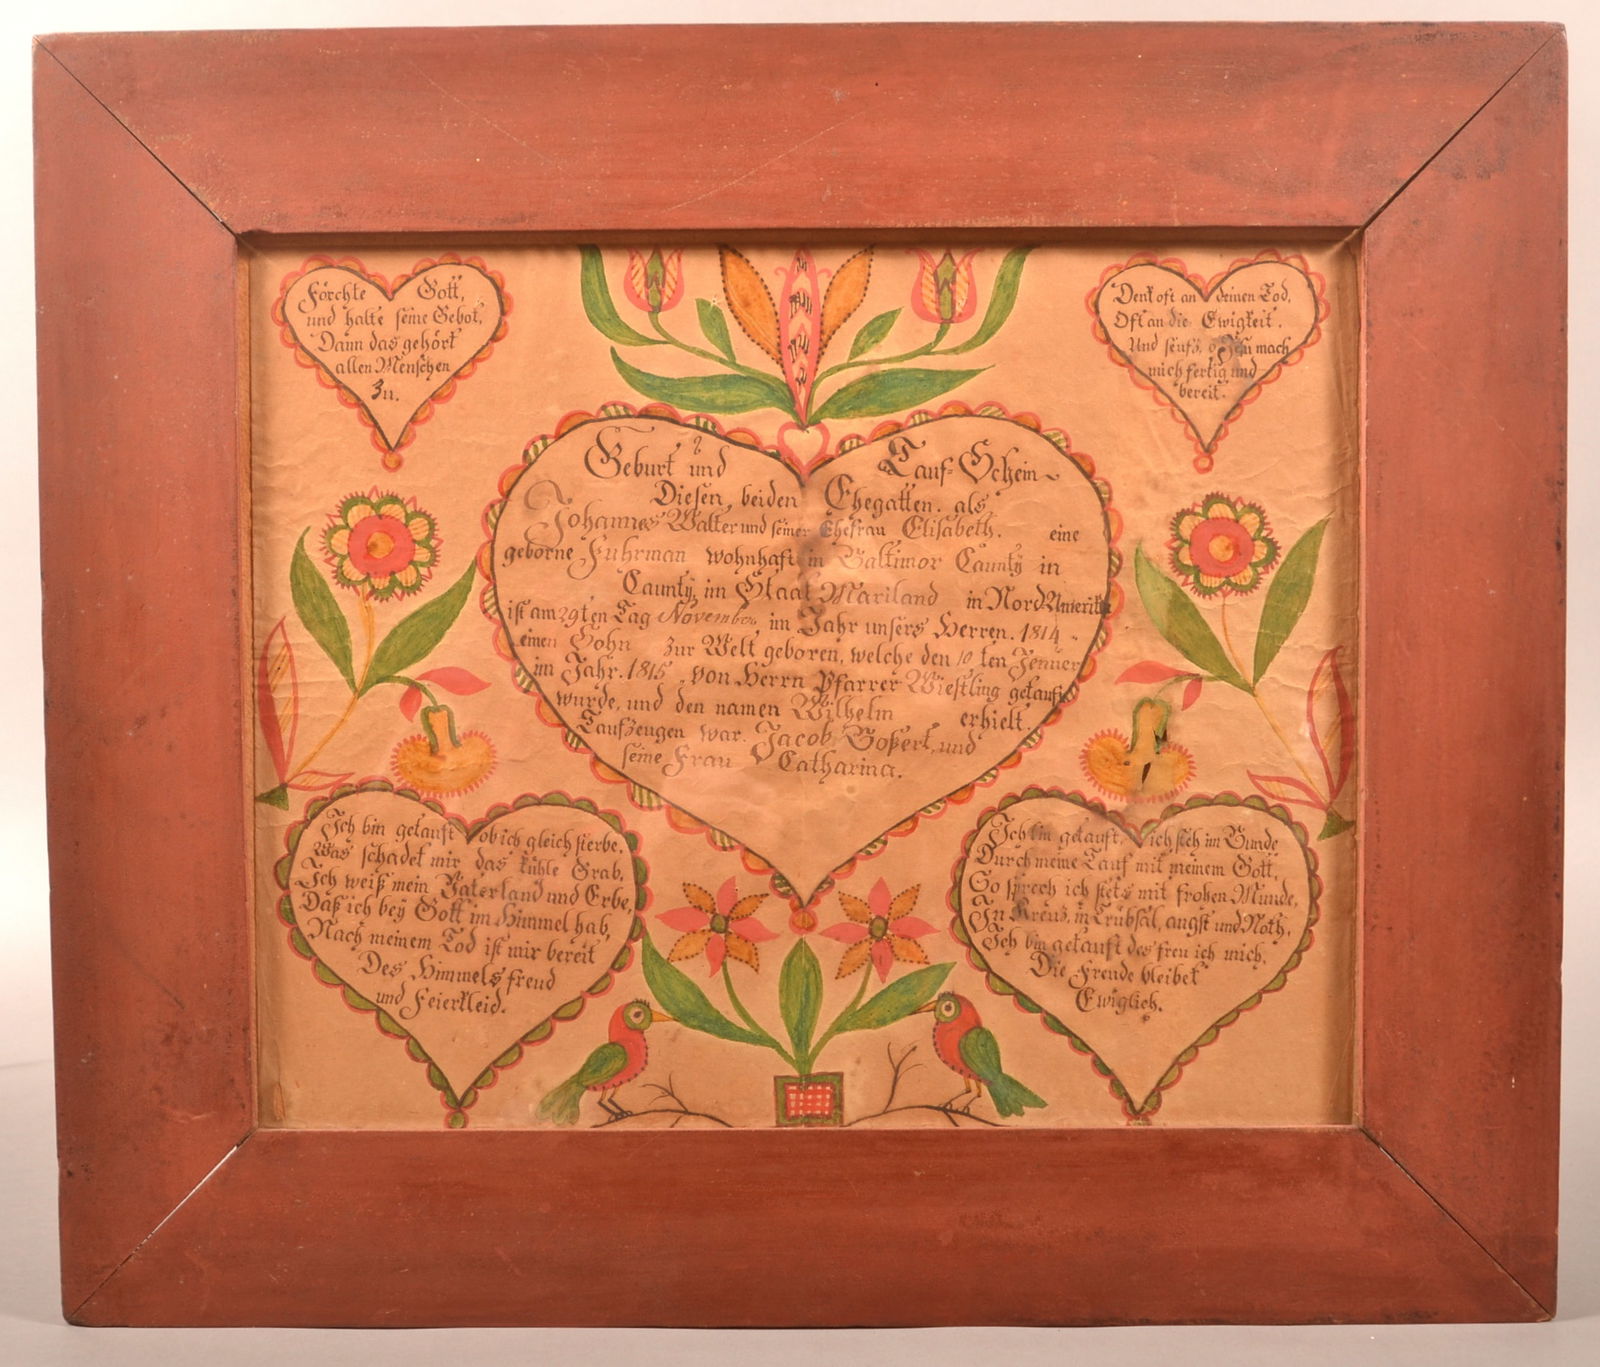 Förchte Gott,
und halte seine Gebot,
Dann das gehört
allen Menschen
Zu.
Denk oft an deinen Tod,
Oft an die Ewigkeit.
Und seufz, o mach
mich fertig und
bereit.
Geburt und Tauf-Schein
Diesen beiden Ehegatten. als
Johannes Walter und seiner Ehefrau Elisabeth. eine
geborne Fuhrman wohnhaft in Baltimor Caunty in
Caunty, im Staat Mariland in Nord Amerika
ist am 29ten Tag November im Jahr unsers Herren. 1814
einen Sohn zur Welt geboren, welche den 10 ten Jenner
im Jahr. 1815, von Herrn Pfarrer Wiestling getauft
wurde, und den namen Wilhelm erhielt.
Taufzeugen war. Jacob Boßert, und
seine Frau Catharina.
Ich bin getauft ob ich gleich sterbe,
Was schadet mir das kühle Grab,
Ich weiß mein Vaterland und Erbe,
Daß ich bey Gott im Himmel hab,
Nach meinem Tod ist mir bereit
Des Himmels freud
und Feierkleid.
Ich bin getauft, ich steh im Bunde
Durch meine Tauf mit meinem Gott,
So sprech ich stets mit frohen Munde,
In Kreuz, in Trübsal, angst und Noth,
Ich bin getauft des freu ich mich,
Die Freude bleibet
Ewiglich.